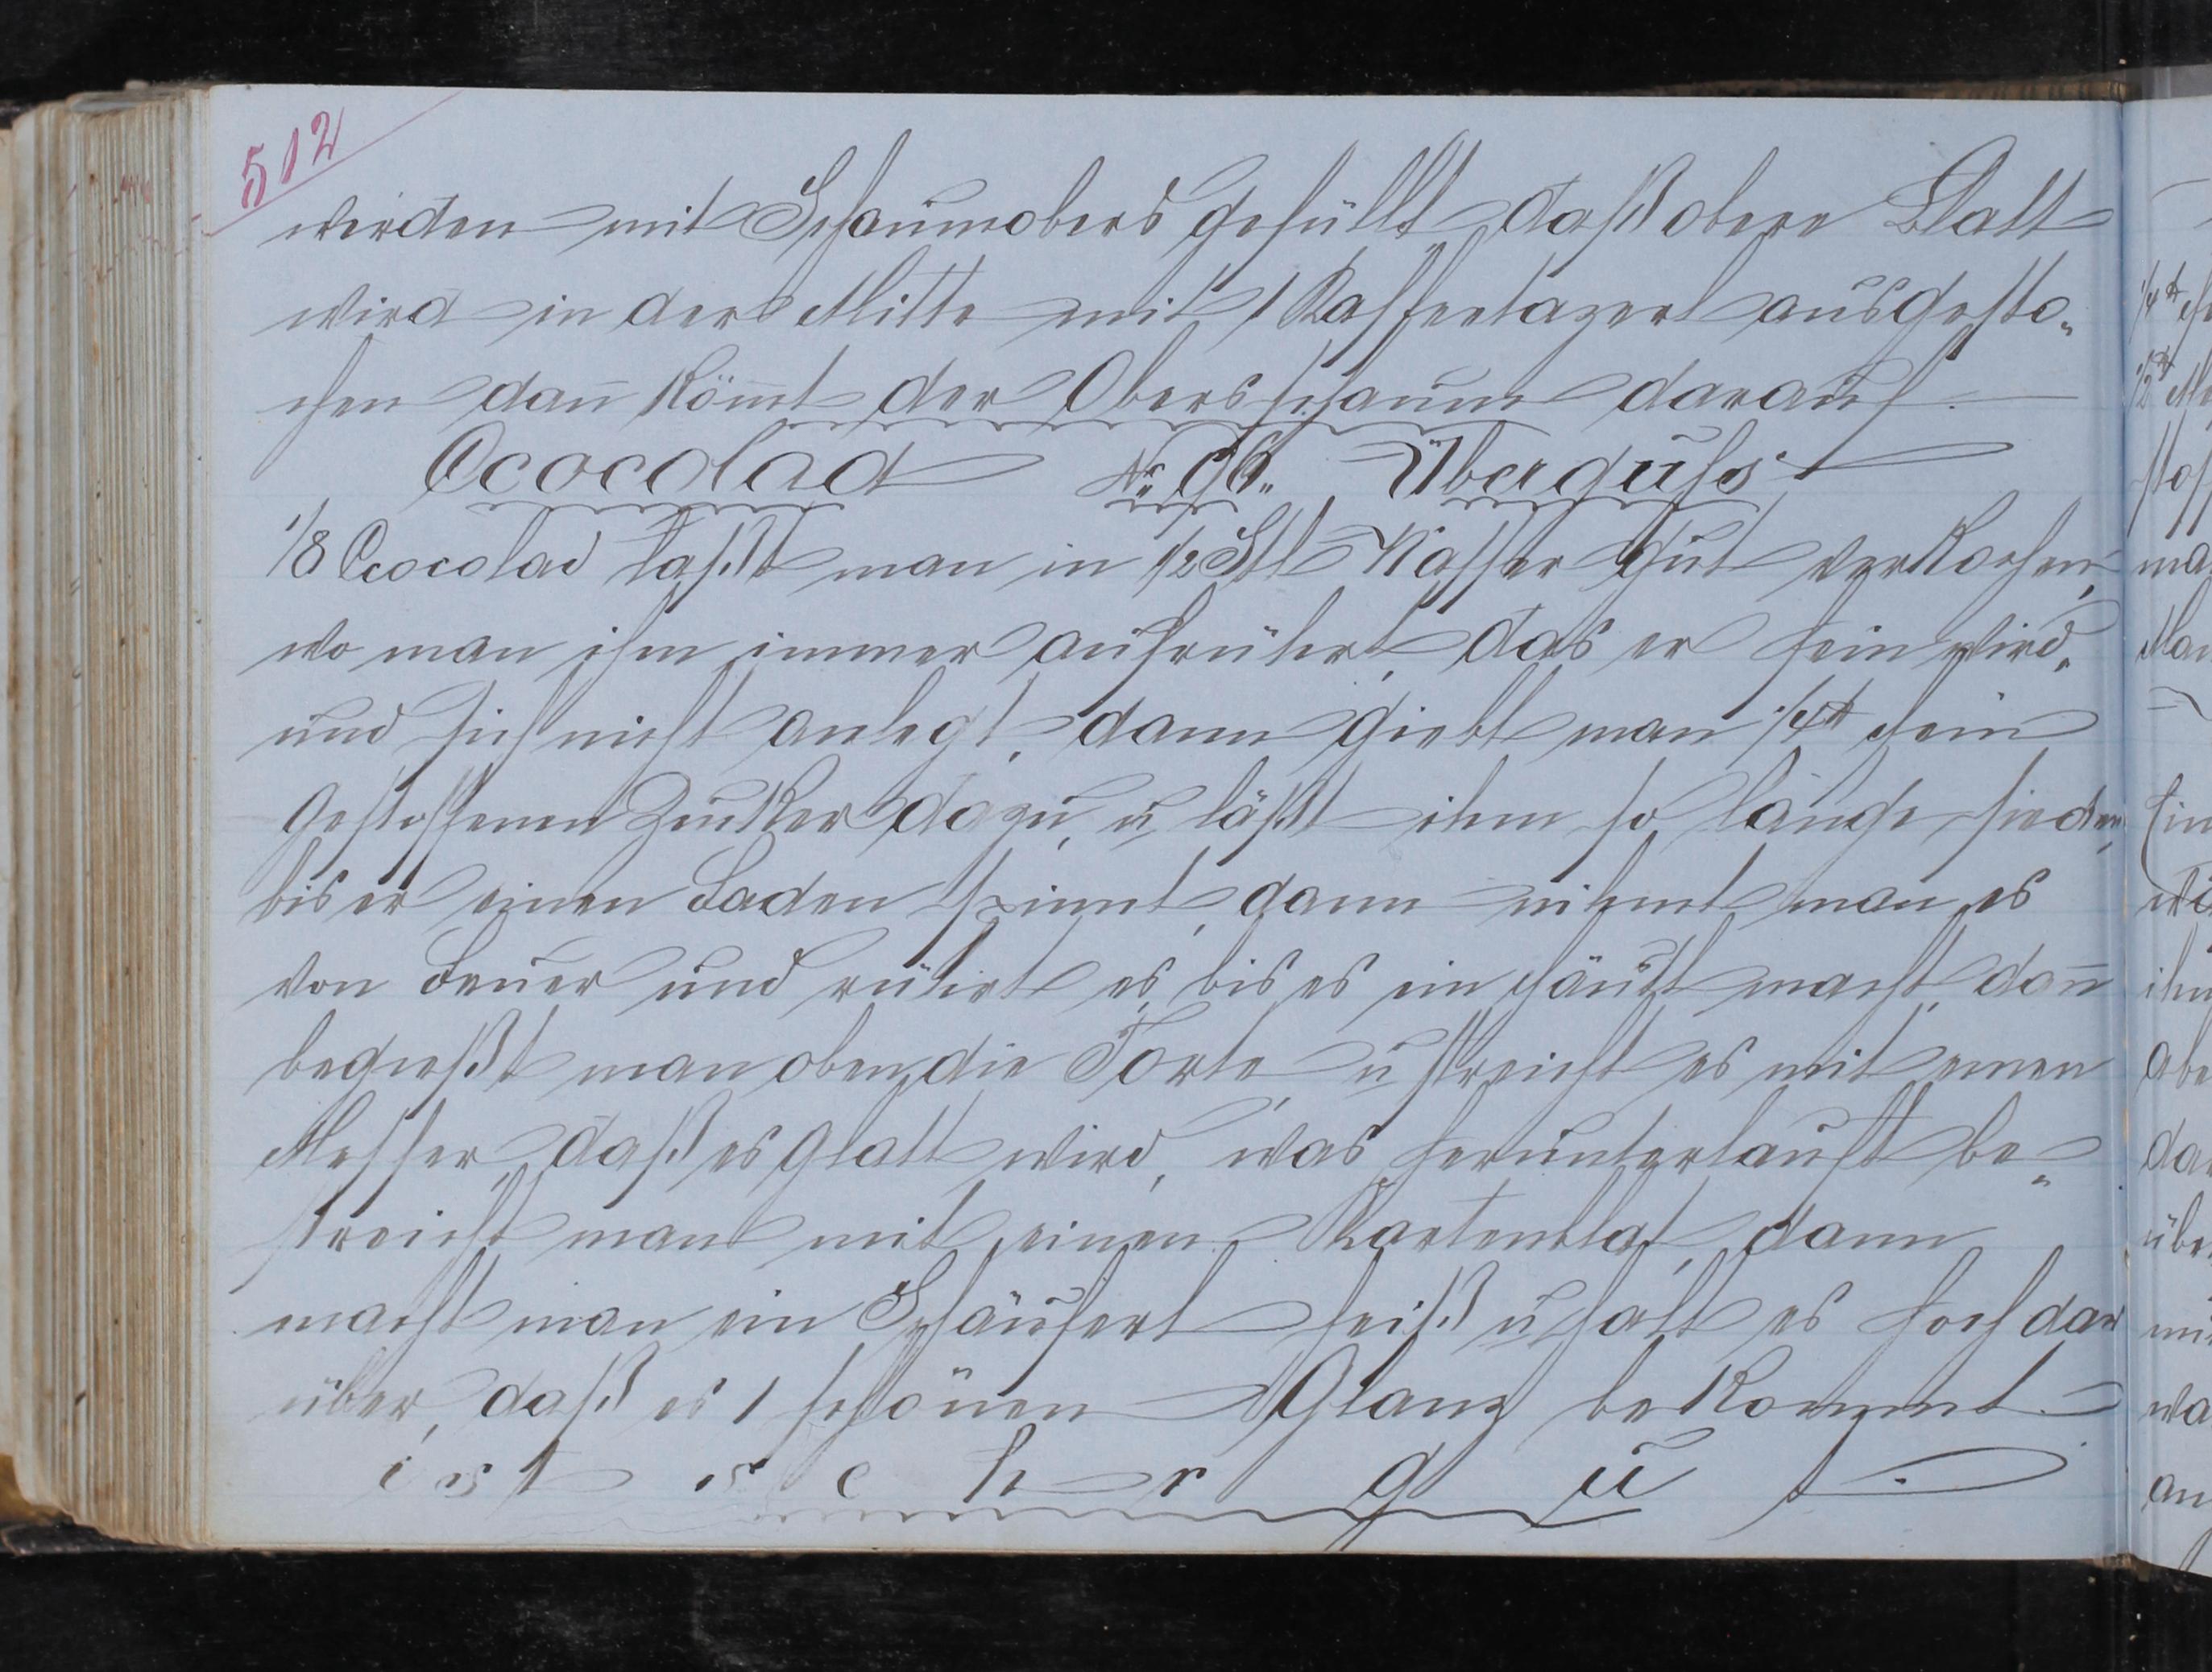 512
werden mit Schaumobers gefüllt daß obere Blatt
wird in der Mitte mit 1 Kaffeetazerl ausgesto„
chen dan̄ köm̄t der Obersschaum darauf.
Ccocolad No 96„ Überguſs
1/8 Ccocolad laßt man in 1/2 Stl Waſſer gut verkochen,
wo man ihm immer aufrührt, das er fein wird„
und sich nicht anlegt, dann giebt man 1/4 ℔ fein
gestoſſenen Zucker dazu, u läßt ihm so lange sieden,
bis er einen Faden spinnt, dann nihmt man es
von Feuer und rührt es, bis es ein Häutl macht, dan̄
begießt man oben die Torte, u streicht es mit einen
Meſſer, daß es glatt wird, was herunterlauft be„
streicht man mit einen Kartenblat, dann
macht man ein Schäuferl heiß u halt es hoch dar
über, daß es 1 schönen Glanz bekommt.
ist sehr gut.